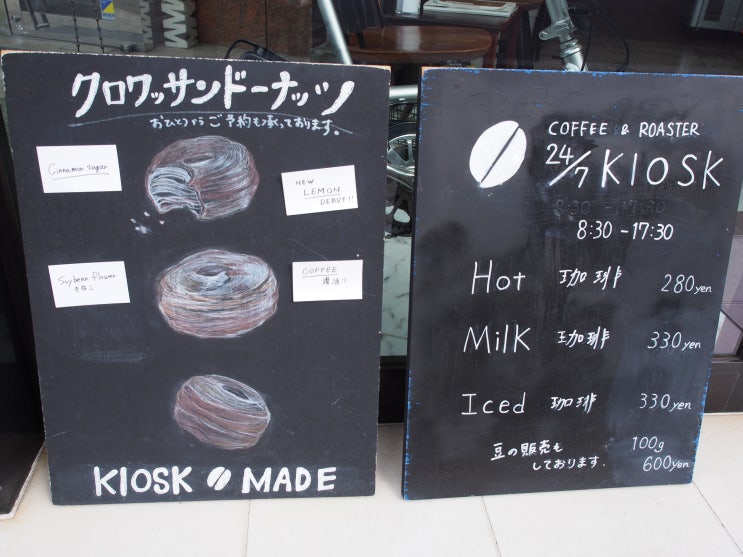 クロワッサンドーナッツ
おひとつから ご予約も承っております。
Cinnamon sugar
NEW
LEMON
DEBUT!!
Soybean flower
きなこ
COFFEE
復活!!
KIOSK MADE
COFFEE & ROASTER
24/7 KIOSK
8:30 - 17:30
8:30 - 17:30
Hot 珈琲 280yen
Milk 珈琲 330yen
Iced 珈琲 330yen
豆の販売も 100g
しております. 600yen